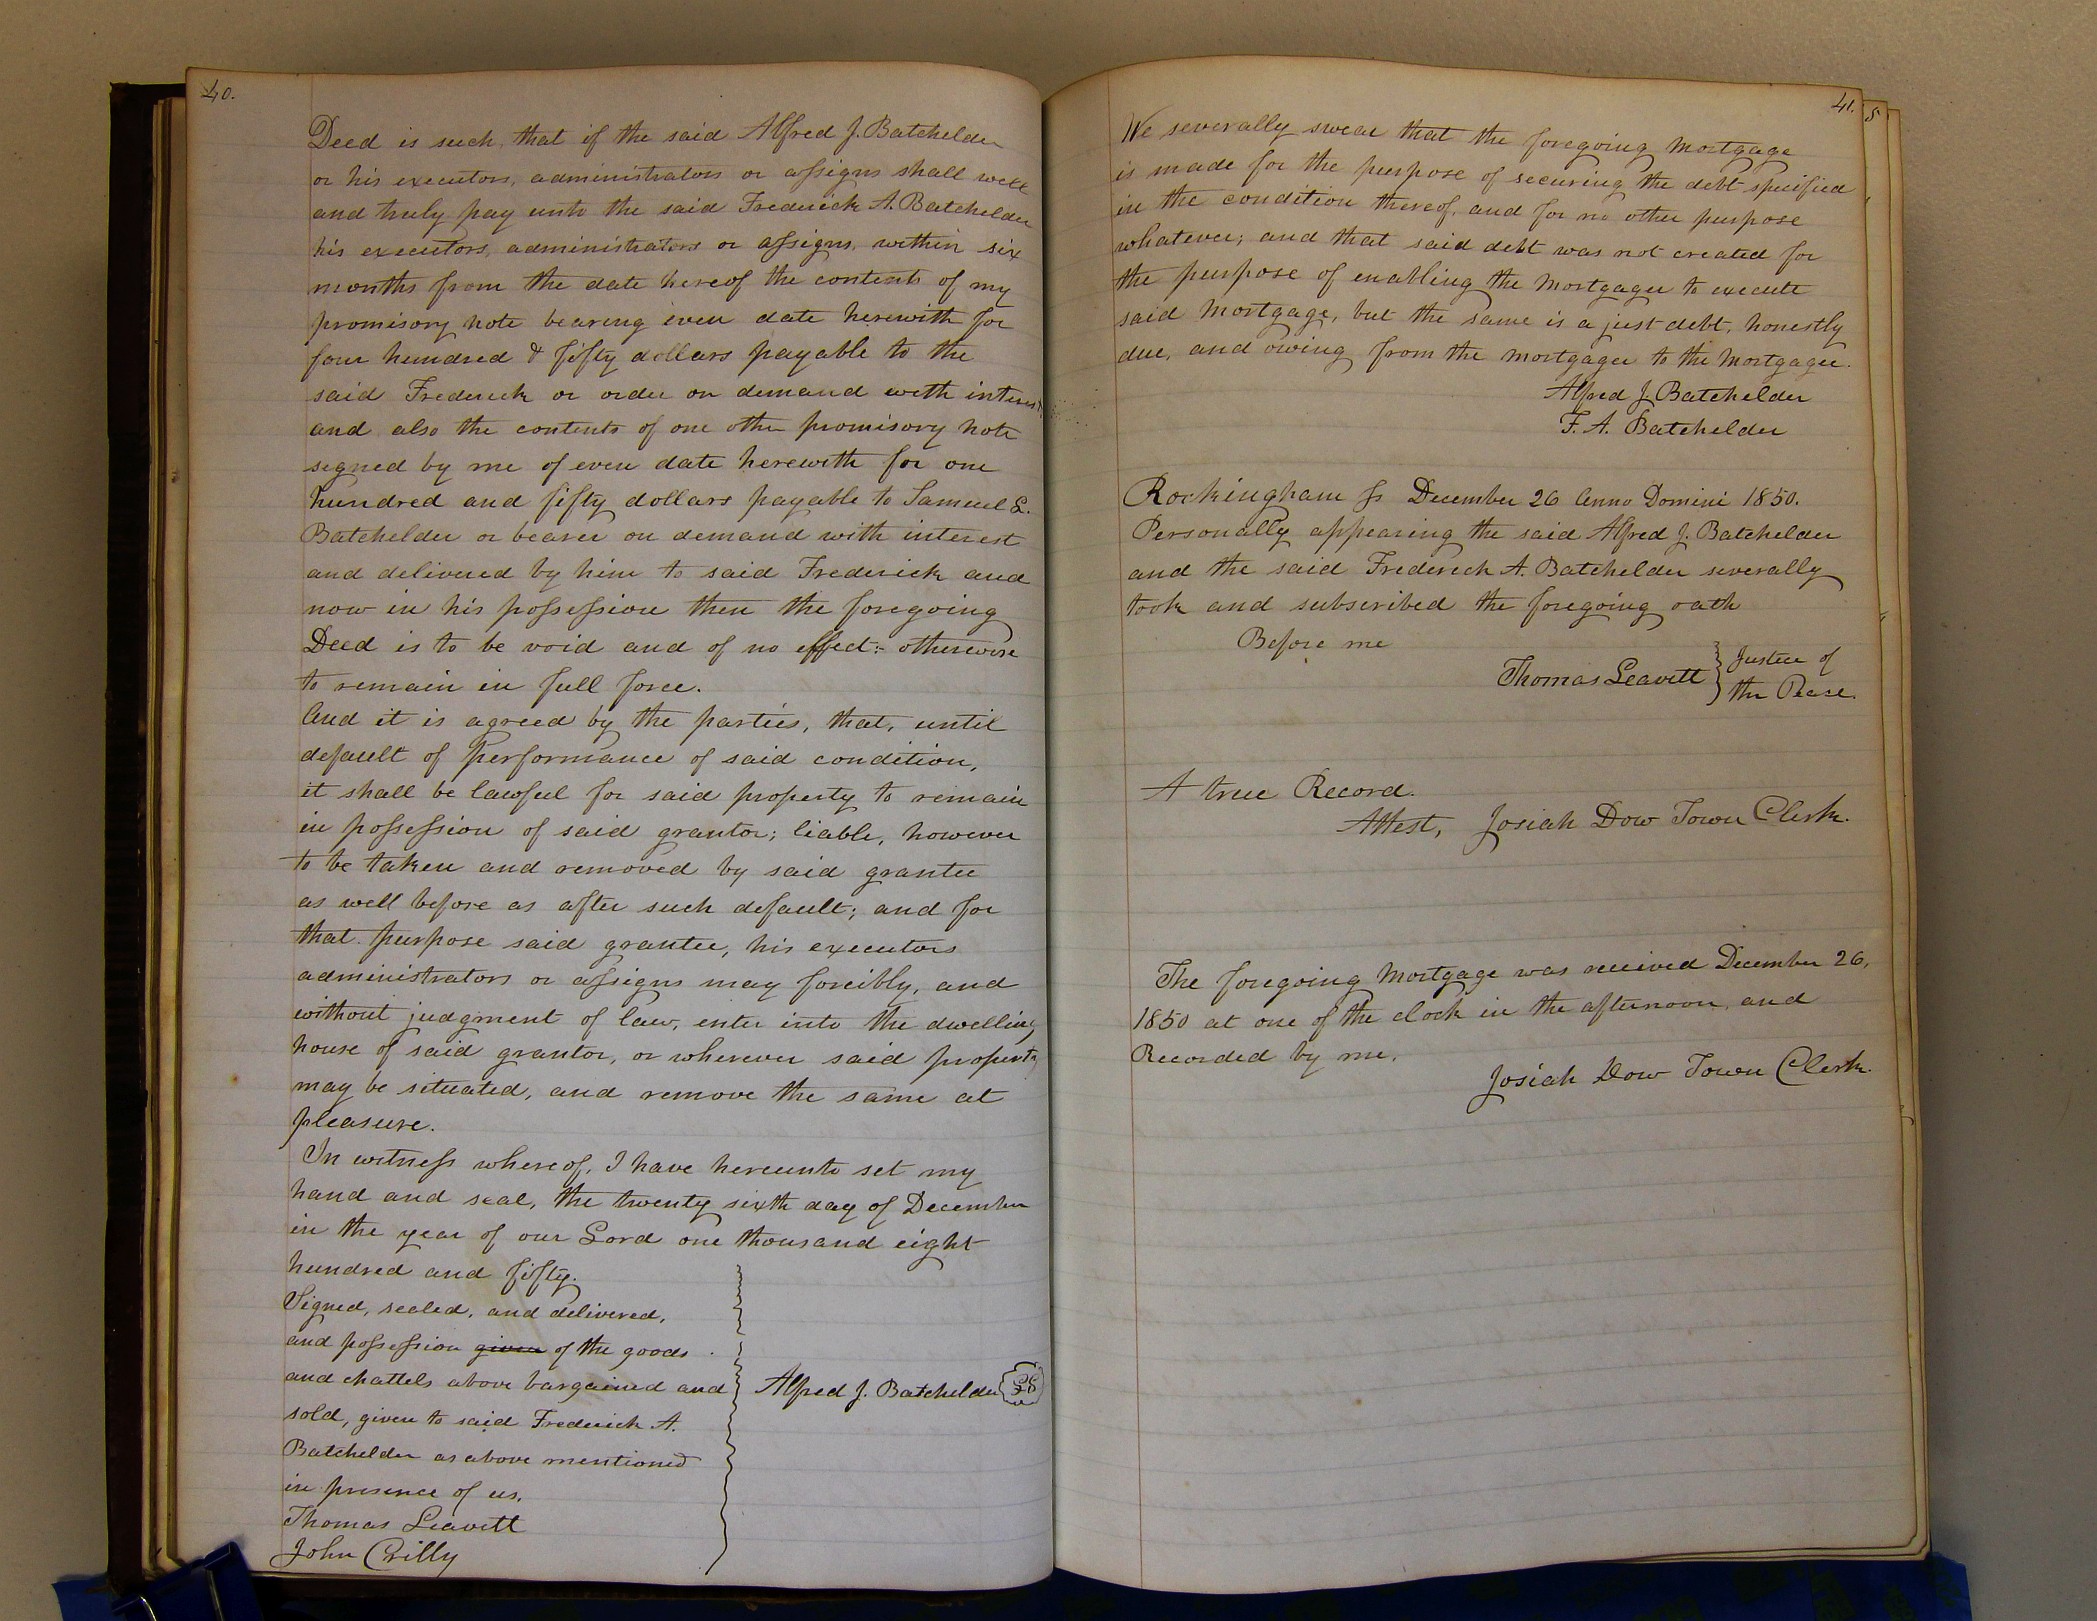 40.
Deed is such, that if the said Alfred J. Batchelder
or his executors, administrators or assigns shall well
and truly pay unto the said Frederick A. Batchelder
his executors, administrators or assigns, within six
months from the date hereof the contents of my
promisory note bearing even date herewith for
four hundred & fifty dollars payable to the
said Frederick or order on demand with interest
and also the contents of one other promisory note
signed by me of even date herewith for one
hundred and fifty dollars payable to Samuel E.
Batchelder or bearer on demand with interest
and delivered by him to said Frederick and
now in his possession then the foregoing
Deed is to be void and of no effect:- otherwise
to remain in full force.
And it is agreed by the parties, that, until
default of performance of said condition,
it shall be lawful for said property to remain
in possession of said grantor; liable, however
to be taken and removed by said grantee
as well before as after such default; and for
that purpose said grantee, his executors
administrators or assigns may forcibly, and
without judgment of law, enter into the dwelling
house of said grantor, or wherever said property
may be situated, and remove the same at
pleasure.
In witness whereof, I have hereunto set my
hand and seal, the twenty sixth day of December
in the year of our Lord one thousand eight
hundred and fifty.
Signed, sealed, and delivered,
and possession given of the goods
and chattels above bargained and
sold, given to said Frederick A.
Batchelder as above mentioned
in presence of us,
Thomas Leavitt
John Crilly
Alfred J. Batchelder LS
41.
We severally swear that the foregoing mortgage
is made for the purpose of securing the debt specified
in the condition thereof, and for no other purpose
whatever; and that said debt was not created for
the purpose of enabling the mortgager to execute
said mortgage, but the same is a just debt, honestly
due, and owing from the mortgager to the mortgagee.
Alfred J. Batchelder
F. A. Batchelder
Rockingham ss December 26 Anno Domini 1850.
Personally appearing the said Alfred J. Batchelder
and the said Frederick A. Batchelder severally
took and subscribed the foregoing oath
Before me
Thomas Leavitt } Justice of
the Peace.
A true Record.
Attest, Josiah Dow Town Clerk.
The foregoing mortgage was received December 26,
1850 at one of the clock in the afternoon, and
Recorded by me,
Josiah Dow Town Clerk.